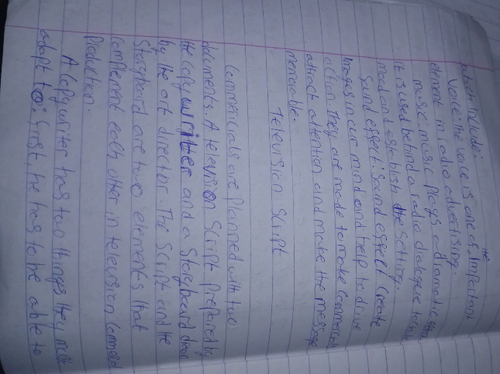 which include:
Voice: the voice is one of the important
element in radio advertising.
music: music plays a dramatic
it is used behind a radio dialogue to
mood and establish the setting.
Sound effect: Sound effect create
images in our mind and help to drive
action. They are made to make commercial
attract attention and make the message
memorable.
Television Script
Commercials are planned with two
documents. A television script prepared by
the copywriter and a Storyboard drawn
by the art director. The script and the
Storyboard are two elements that
complement each other in television commercial
Production.
A Copywriter has two things they must
adapt to: first, he has to be able to